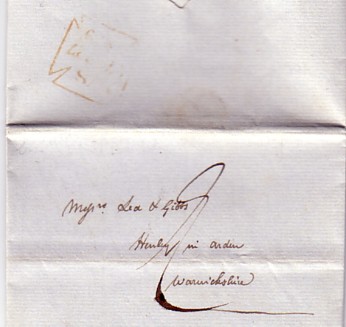 Messrs. Lea & Gibbs
Henley in arden
Warwickshire